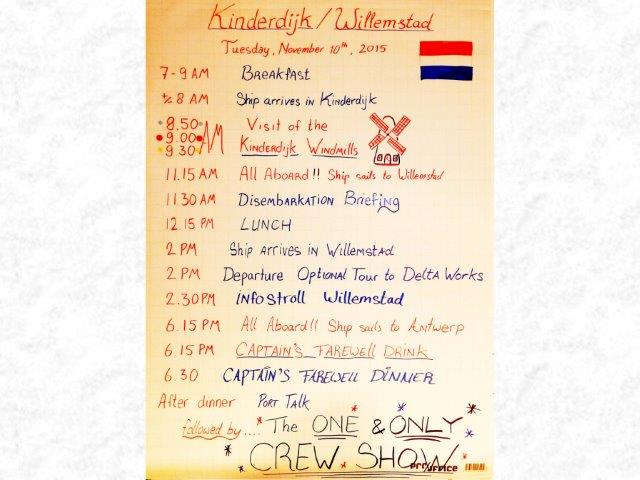 Kinderdijk / Willemstad
Tuesday, November 10th, 2015
7-9 AM Breakfast
± 8 AM Ship arrives in Kinderdijk
8.50 Visit of the
9.00 AM Kinderdijk Windmills
9.30
11.15 AM All Aboard!! Ship sails to Willemstad
11.30 AM Disembarkation Briefing
12.15 PM LUNCH
2 PM Ship arrives in Willemstad
2 PM Departure Optional Tour to Delta Works
2.30 PM Info Stroll Willemstad
6.15 PM All Aboard!! Ship sails to Antwerp
6.15 PM CAPTAIN'S FAREWELL DRINK
6.30 CAPTAIN'S FAREWELL DINNER
After dinner PORT TALK
followed by.... The ONE & ONLY
CREW SHOW